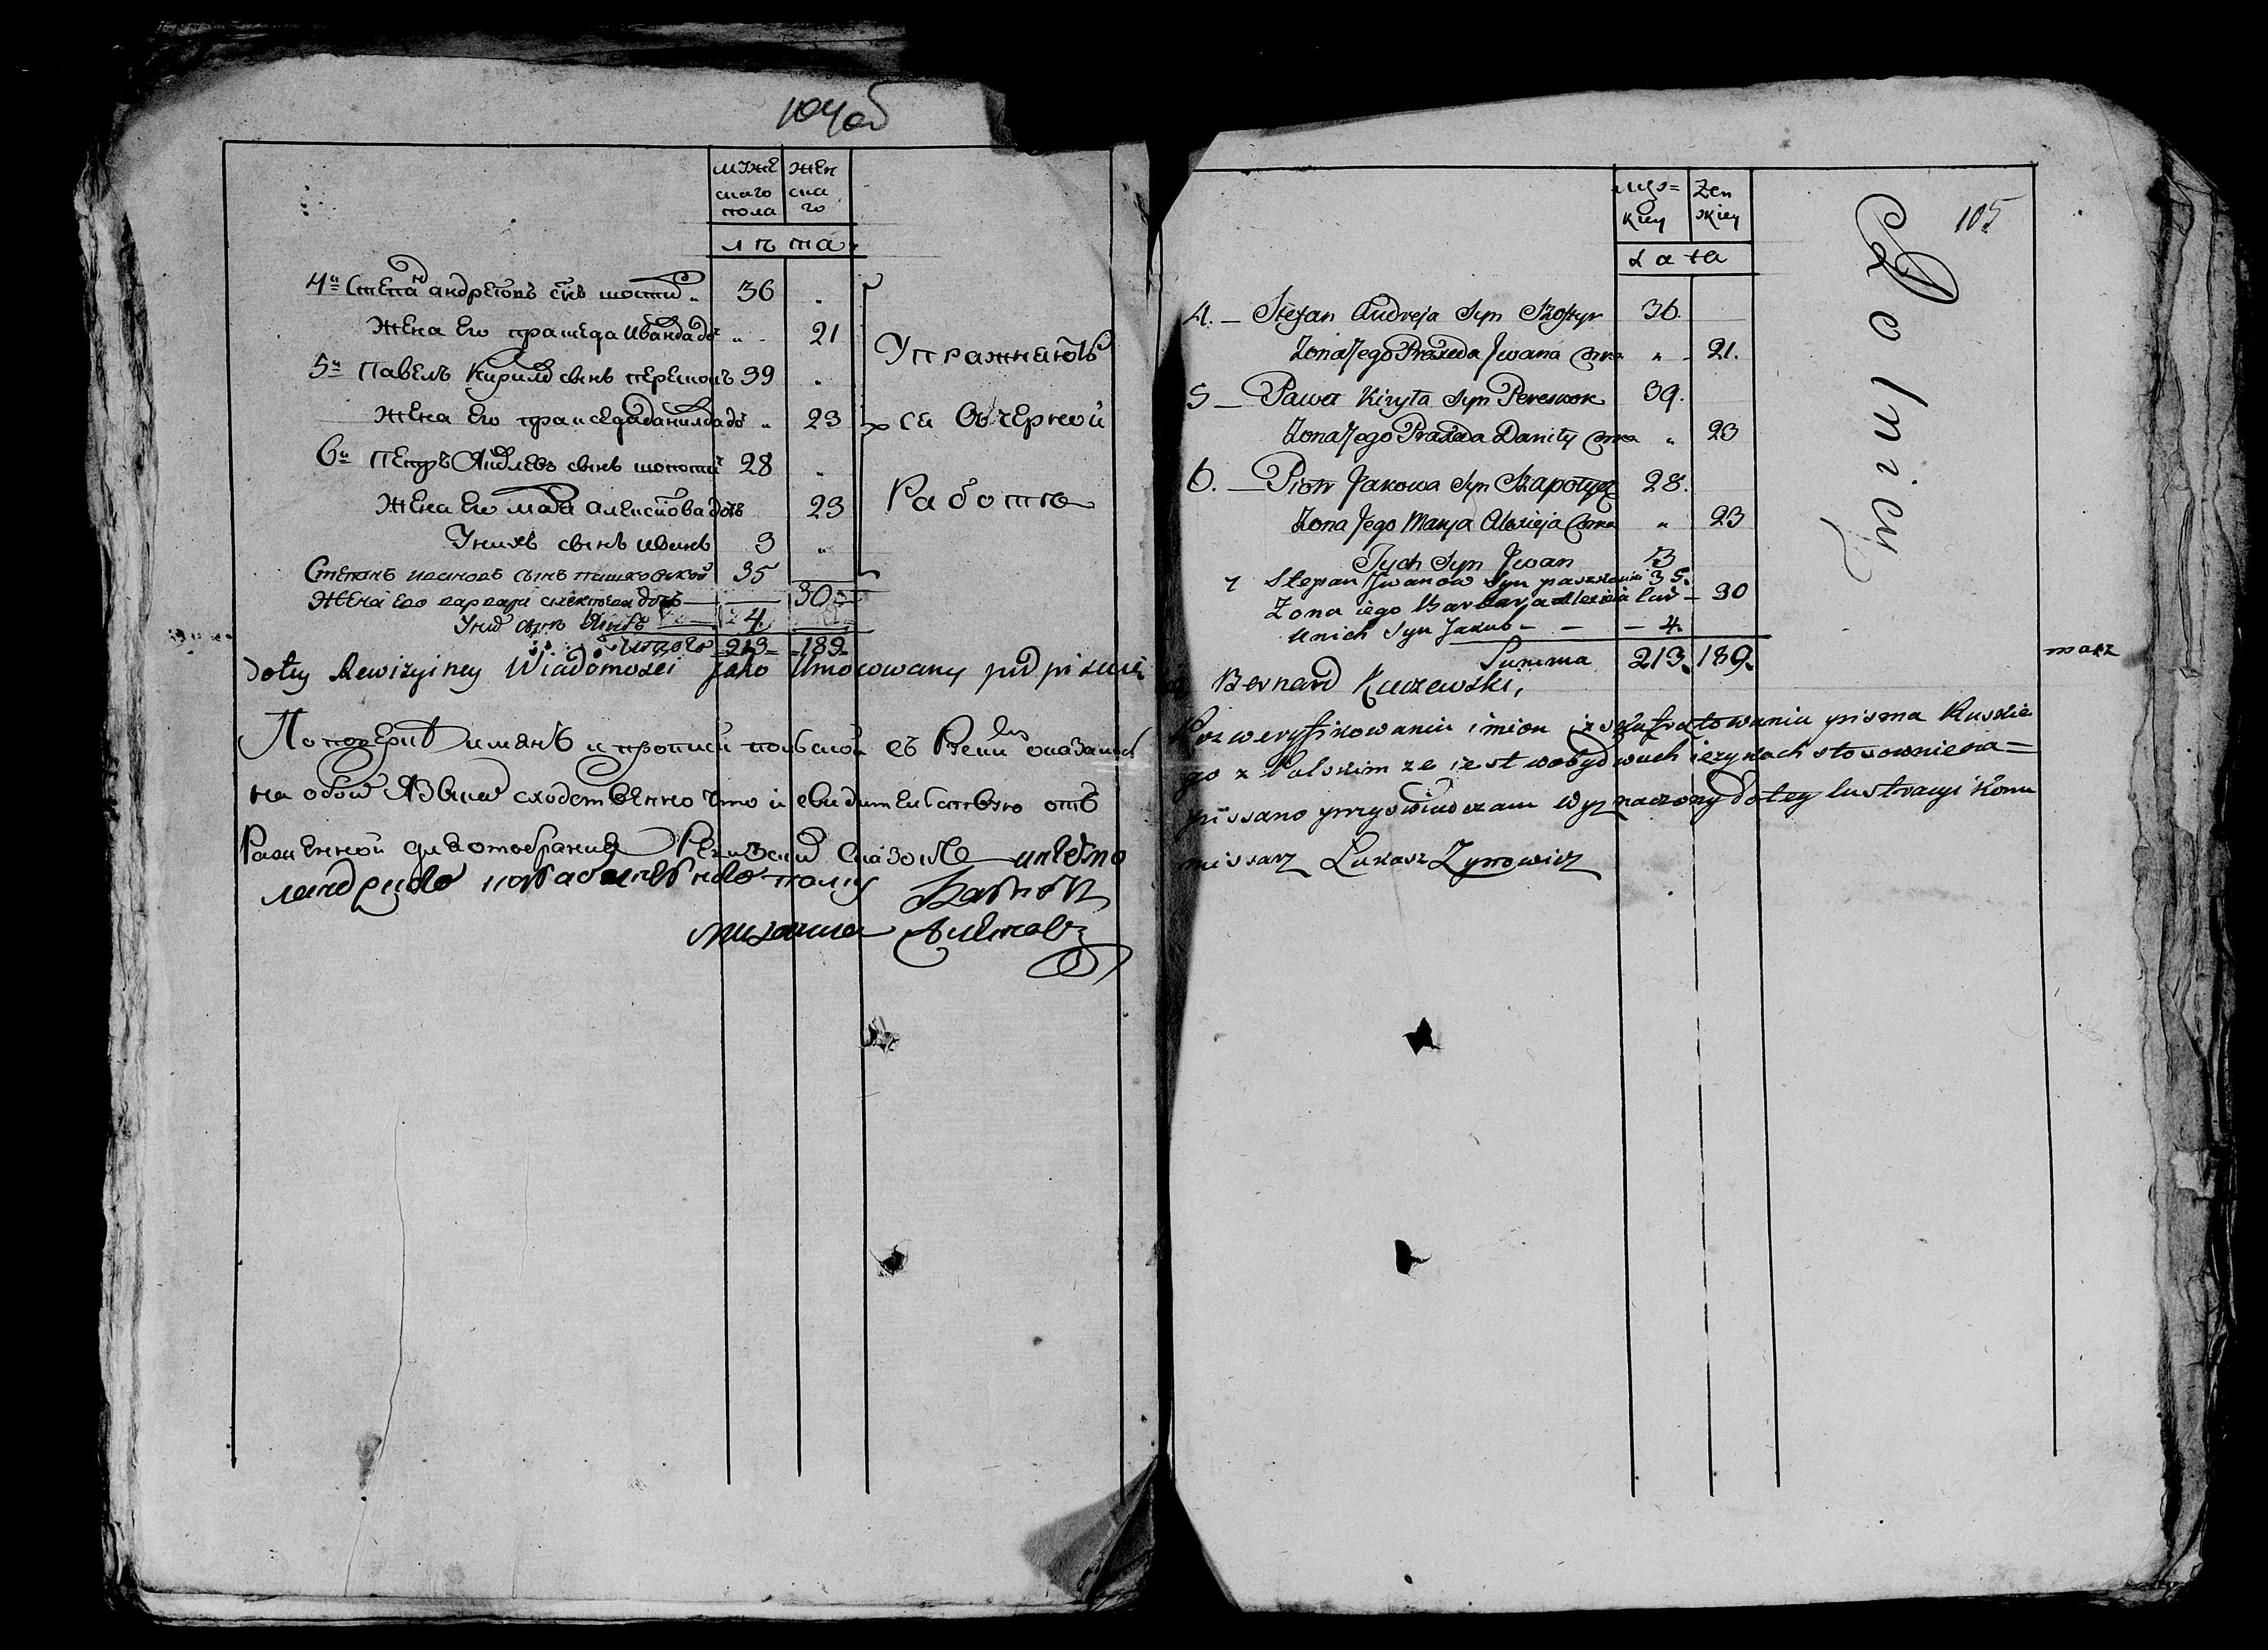 104об
мужескаго пола женскаго
лѣта
4й Степанъ андреювъ снъ шости 36
Жена Его праседа Ивана дочь 21
5й Павелъ Кирила сынъ пересмокъ 39
Жена Его праседа данила дочь 23
6й Петръ Яковлевъ сынъ шопотый 28
Жена Его Марья алексеова дочь 23
Унихъ сынъ иванъ 3
Степанъ ивановъ сынъ пашковской 35
Жена Его варвара алексеева дочь 30
Унихъ сынъ 4
Итого 213 189
Упражнаютъ
са Въчерной
Работе
doтey Rewizyiney Wiadomosci jako Umocowany podpisuie
По поверке имянъ и прописи польской съ Рускою оказалось
на обоих Языках сходственно что и свидетельствую отъ
Казенной для отобрания Ревизских Сказокъ
105
męzkiey Zenskiey
Lata
4. — Stefan Andreja Syn Szostyr 36.
Zona Jego Praxeda Jwana Corka „ 21.
5 — Paweł Kiryła Syn Pereswok 39.
Zona Jego Praxeda Daniły Corka „ 23
6. — Piotr Jakowa Syn Szapotyg 28.
Zona Jego Marya Alexieja Corka „ 23
Tych Syn Jwan 3
7 Stepan Jwanow Syn paszkowski 35.
Zona iego Barbara Alexieia Cur — 30
Unich Syn Jakub — — — 4.
Summa 213. 189.
Rolnicy
Bernard Kuczewski,
marz
Po zweryfikowaniu imion i zskutrotowaniu pisma Ruskie
go z Polskim ze iest wobydwuch ięzykach stosownie na=
pissano przyswiadczam wyznaczony dotey lustracyi Kom
missarz Łukasz Zyrowicz